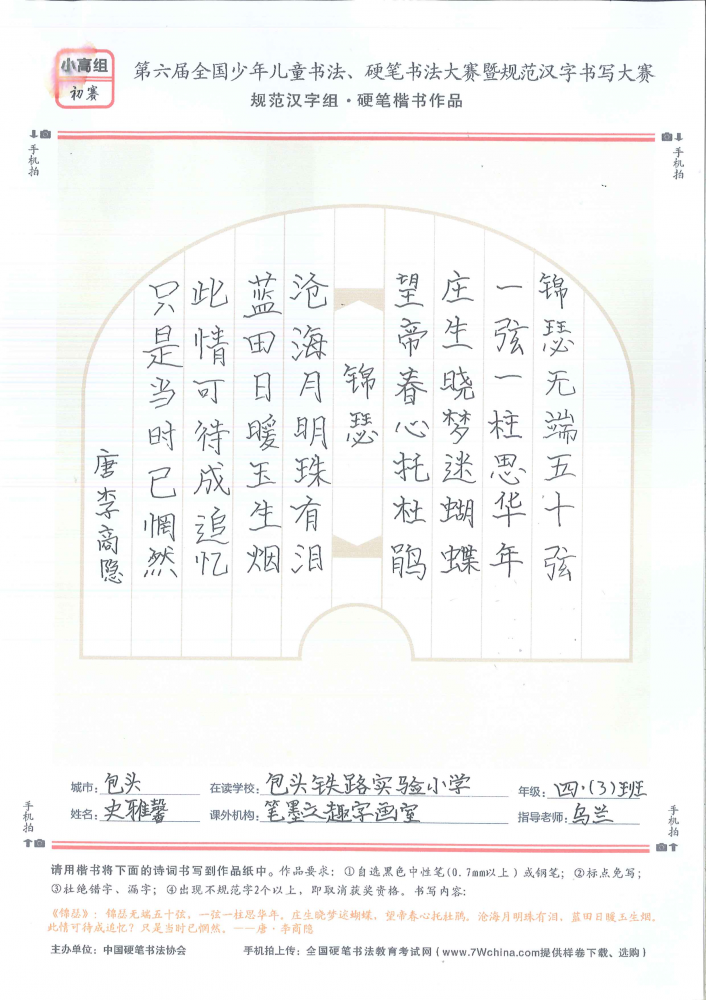 小高组
初赛
第六届全国少年儿童书法、硬笔书法大赛暨规范汉字书写大赛
规范汉字组·硬笔楷书作品
手机拍
手机拍
锦瑟无端五十弦
一弦一柱思华年
庄生晓梦迷蝴蝶
望帝春心托杜鹃
锦瑟
沧海月明珠有泪
蓝田日暖玉生烟
此情可待成追忆
只是当时已惘然
唐李商隐
城市：包头 在读学校：包头铁路实验小学 年级：四·(3)班
姓名：史雅馨 课外机构：笔墨之趣字画室 指导老师：乌兰
手机拍
手机拍
请用楷书将下面的诗词书写到作品纸中。作品要求：①自选黑色中性笔(0.7mm以上)或钢笔；②标点免写；
③杜绝错字、漏字；④出现不规范字2个以上，即取消获奖资格。书写内容：
《锦瑟》：锦瑟无端五十弦，一弦一柱思华年。庄生晓梦迷蝴蝶，望帝春心托杜鹃。沧海月明珠有泪，蓝田日暖玉生烟。
此情可待成追忆？只是当时已惘然。——唐·李商隐
主办单位：中国硬笔书法协会 手机拍上传：全国硬笔书法教育考试网（www.7Wchina.com提供样卷下载、选购）